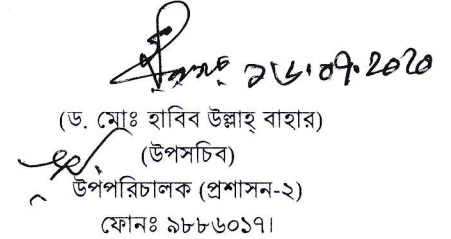 ১৬.০৭.২০২০
(ড. মোঃ হাবিব উল্লাহ্ বাহার)
(উপসচিব)
উপপরিচালক (প্রশাসন-২)
ফোনঃ ৯৮৮৬০১৭।